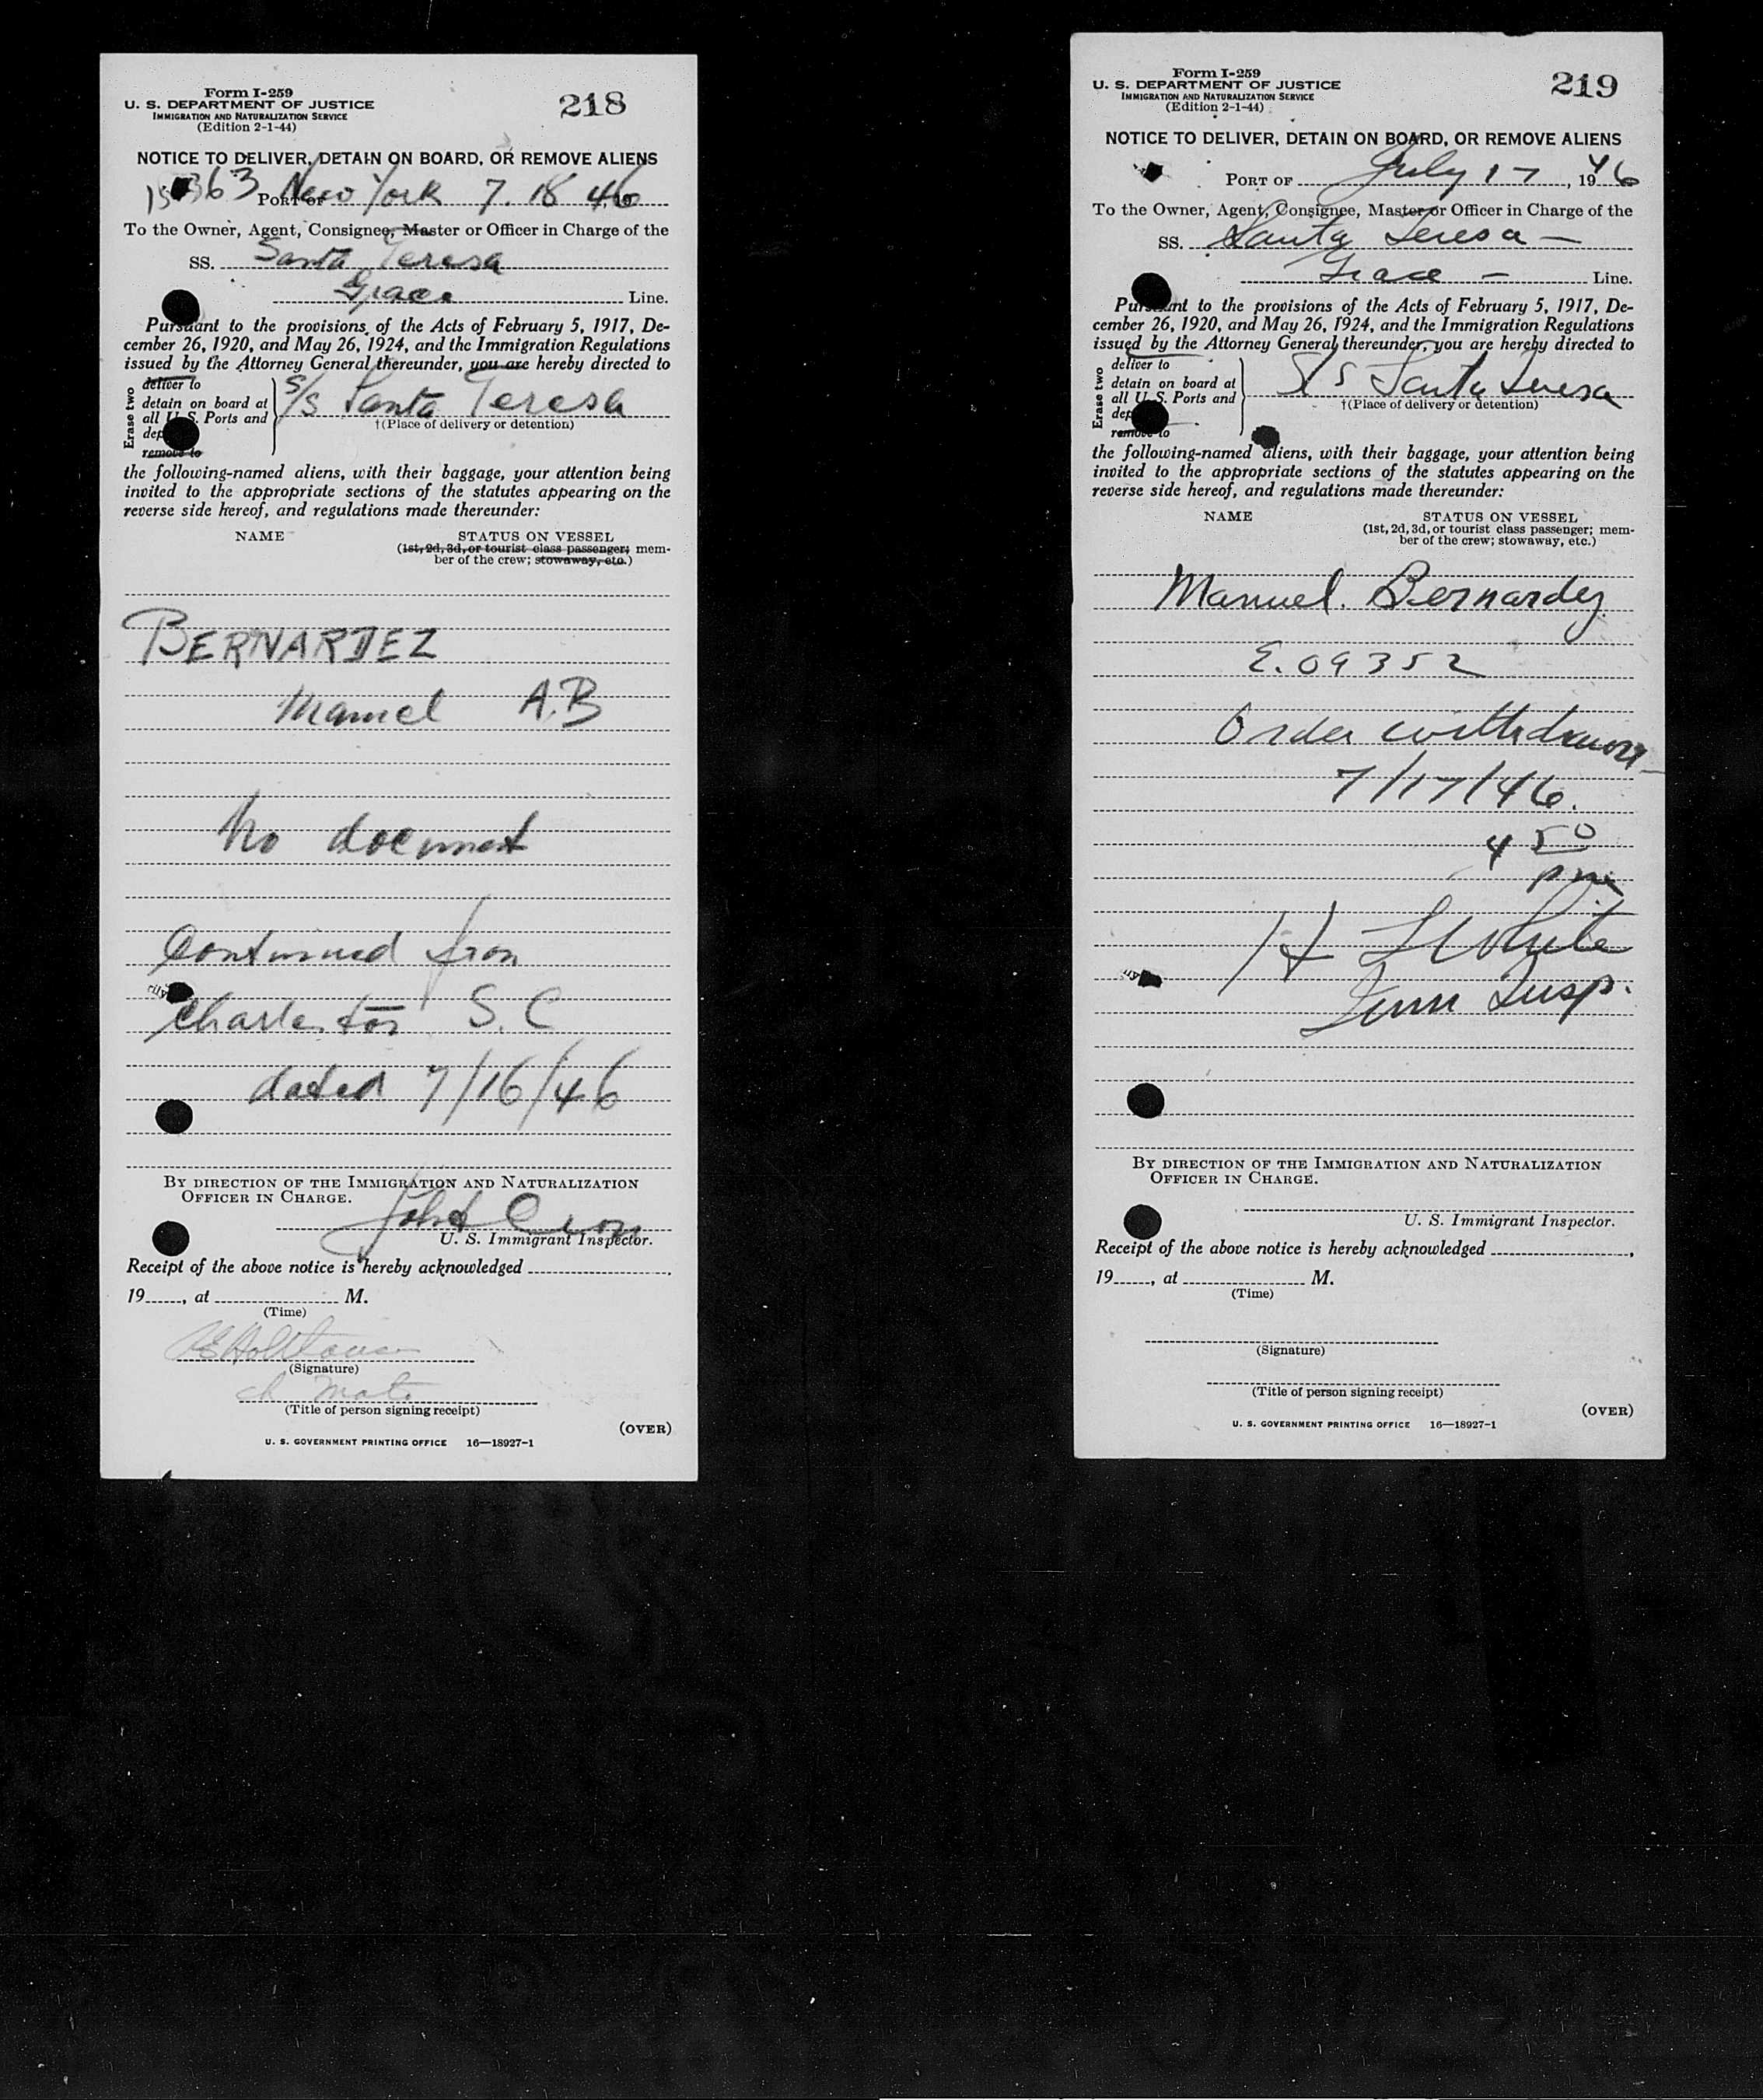 Form I-259
U. S. DEPARTMENT OF JUSTICE
IMMIGRATION AND NATURALIZATION SERVICE
(Edition 2-1-44)
218
NOTICE TO DELIVER, DETAIN ON BOARD, OR REMOVE ALIENS
363 PORT OF New York 7. 18 46
To the Owner, Agent, Consignee, Master or Officer in Charge of the
SS. Santa Teresa
Grace Line.
Pursuant to the provisions of the Acts of February 5, 1917, De-
cember 26, 1920, and May 26, 1924, and the Immigration Regulations
issued by the Attorney General thereunder, you are hereby directed to
Erase two
deliver to
detain on board at
all U. S. Ports and
dep
remove to
S/S Santa Teresa
†(Place of delivery or detention)
the following-named aliens, with their baggage, your attention being
invited to the appropriate sections of the statutes appearing on the
reverse side hereof, and regulations made thereunder:
NAME STATUS ON VESSEL
(1st, 2d, 3d, or tourist class passenger; mem-
ber of the crew; stowaway, etc.)
BERNARDEZ
Manuel A.B
No document
Continued from
Charleston S.C
dated 7/16/46
BY DIRECTION OF THE IMMIGRATION AND NATURALIZATION
OFFICER IN CHARGE.
U. S. Immigrant Inspector.
Receipt of the above notice is hereby acknowledged
19, at M.
(Time)
(Signature)
ch Mate
(Title of person signing receipt)
(OVER)
U. S. GOVERNMENT PRINTING OFFICE 16—18927-1
Form I-259
U. S. DEPARTMENT OF JUSTICE
IMMIGRATION AND NATURALIZATION SERVICE
(Edition 2-1-44)
219
NOTICE TO DELIVER, DETAIN ON BOARD, OR REMOVE ALIENS
PORT OF July 17, 1946
To the Owner, Agent, Consignee, Master or Officer in Charge of the
SS. Santa Teresa —
Grace — Line.
Pursuant to the provisions of the Acts of February 5, 1917, De-
cember 26, 1920, and May 26, 1924, and the Immigration Regulations
issued by the Attorney General thereunder, you are hereby directed to
Erase two
deliver to
detain on board at
all U. S. Ports and
dep
remove to
S/S Santa Teresa
†(Place of delivery or detention)
the following-named aliens, with their baggage, your attention being
invited to the appropriate sections of the statutes appearing on the
reverse side hereof, and regulations made thereunder:
NAME STATUS ON VESSEL
(1st, 2d, 3d, or tourist class passenger; mem-
ber of the crew; stowaway, etc.)
Manuel. Bernardez
E. 09352
Order withdrawn
7/17/46.
4 50
pm
H White
Imm Insp.
BY DIRECTION OF THE IMMIGRATION AND NATURALIZATION
OFFICER IN CHARGE.
U. S. Immigrant Inspector.
Receipt of the above notice is hereby acknowledged
19, at M.
(Time)
(Signature)
(Title of person signing receipt)
(OVER)
U. S. GOVERNMENT PRINTING OFFICE 16—18927-1